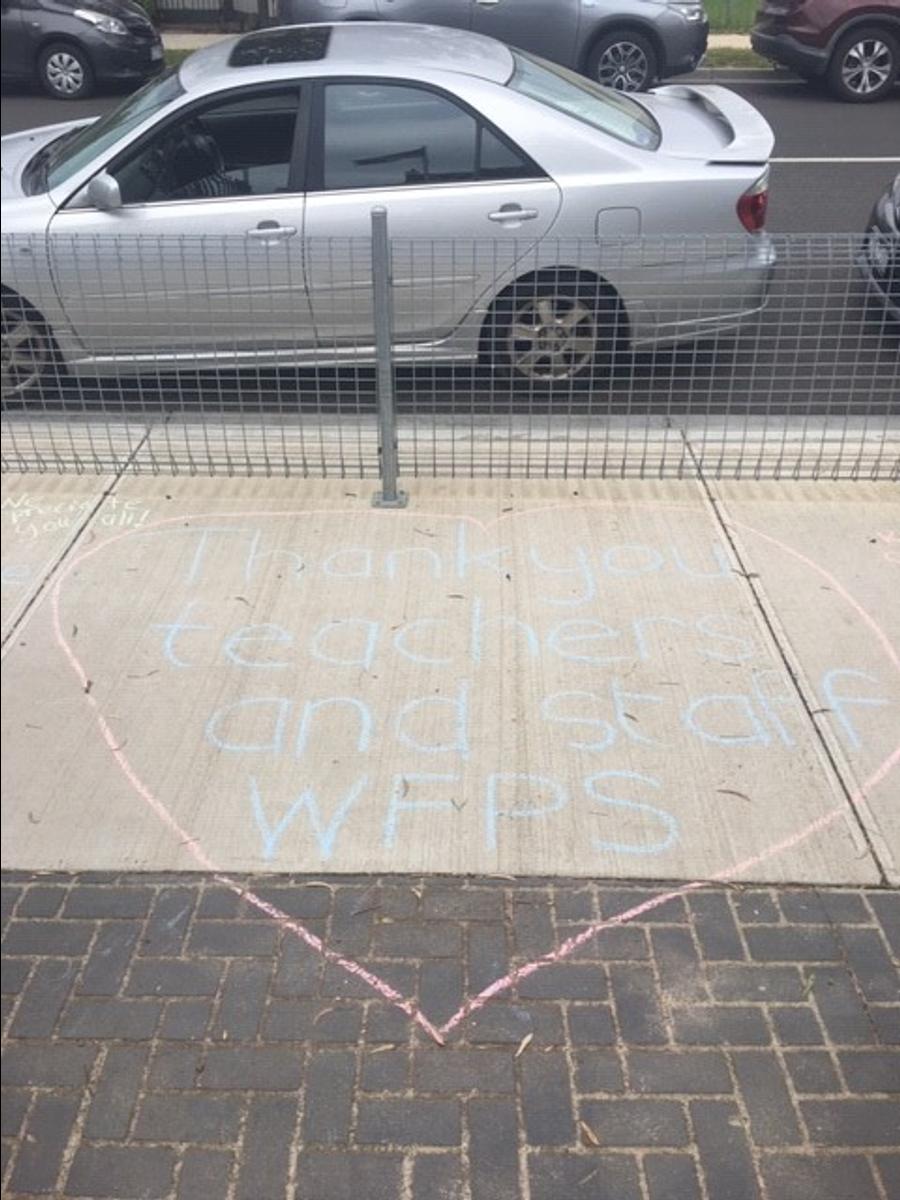 We
preciate
you all!
Thank you
teachers
and staff
WFPS